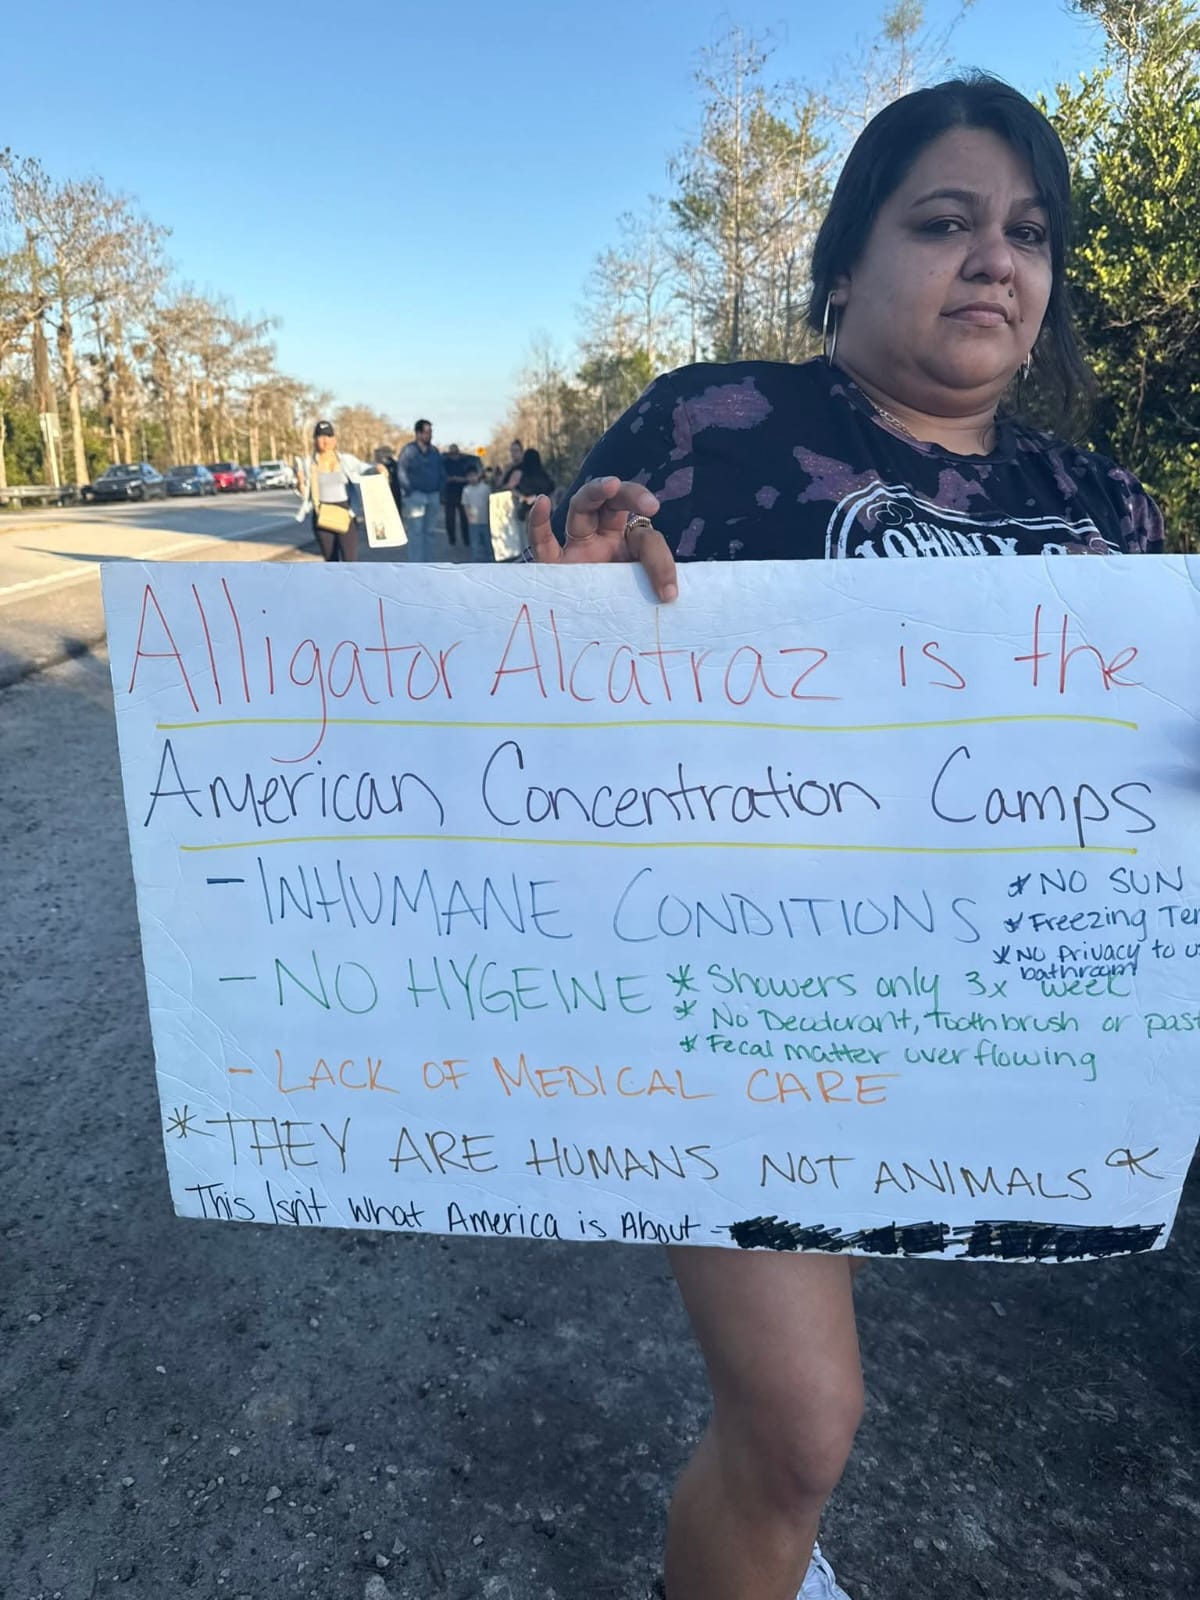 JOHNNY
Alligator Alcatraz is the
American Concentration Camps
- INHUMANE CONDITIONS
* NO SUN
* Freezing
* No Privacy to
bathroom
- NO HYGEINE
* Showers only 3x week
* No Deodorant, toothbrush or
* Fecal matter overflowing
- LACK OF MEDICAL CARE
* THEY ARE HUMANS NOT ANIMALS *
This Isn't What America is About -